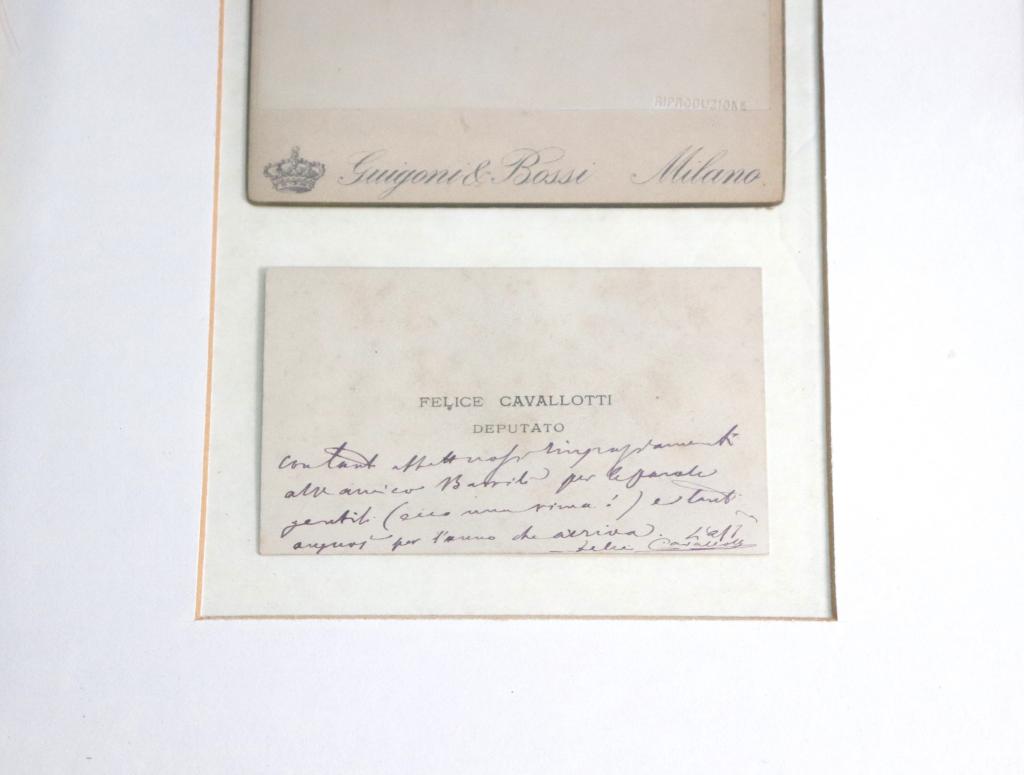 RIPRODUZIONE
Guigoni & Bossi Milano
FELICE CAVALLOTTI
DEPUTATO
con tanti affettuosi ringraziamenti
all'amico Barrili per le parole
gentili (ecco una rima!) e tanti
auguri per l'anno che arriva. L'aff
Felice Cavallotti